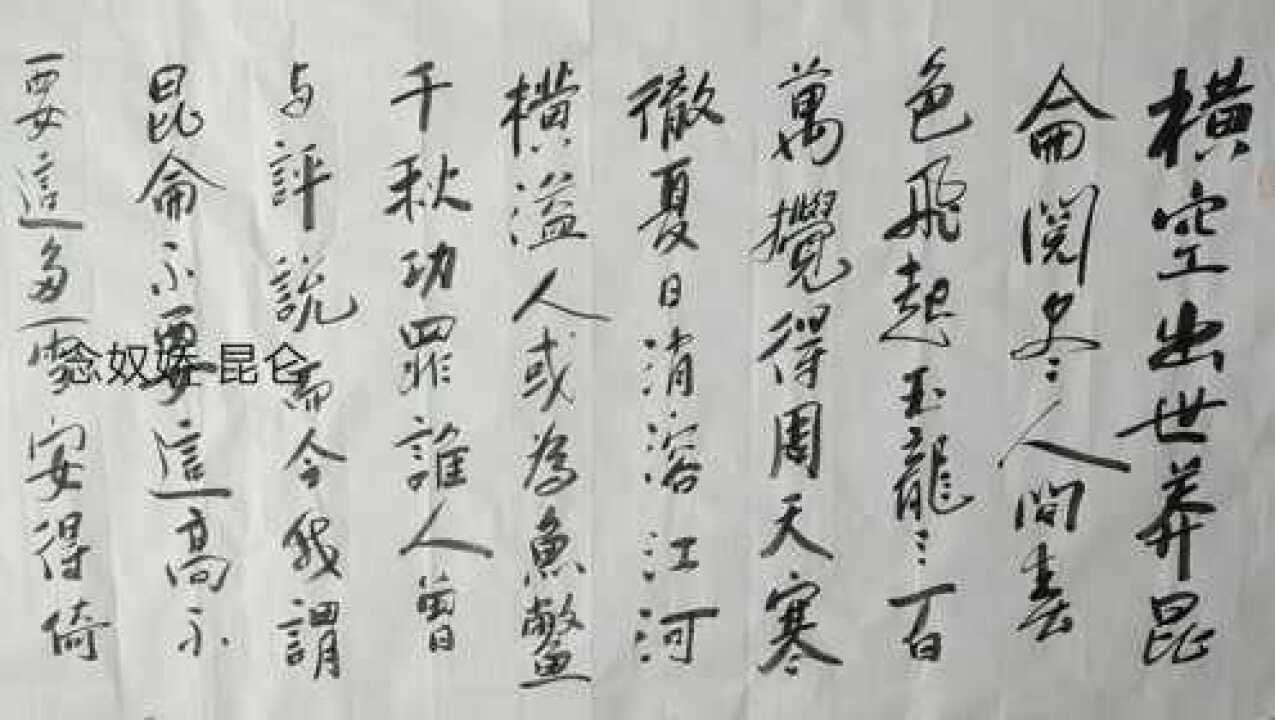 横空出世莽昆
侖閱尽人間春
色飛起玉龍三百
萬攪得周天寒
徹夏日消溶江河
横溢人或為魚鱉
千秋功罪誰人曾
与評說而今我謂
昆侖不要這高不
要這多雪安得倚
念奴娇 昆仑